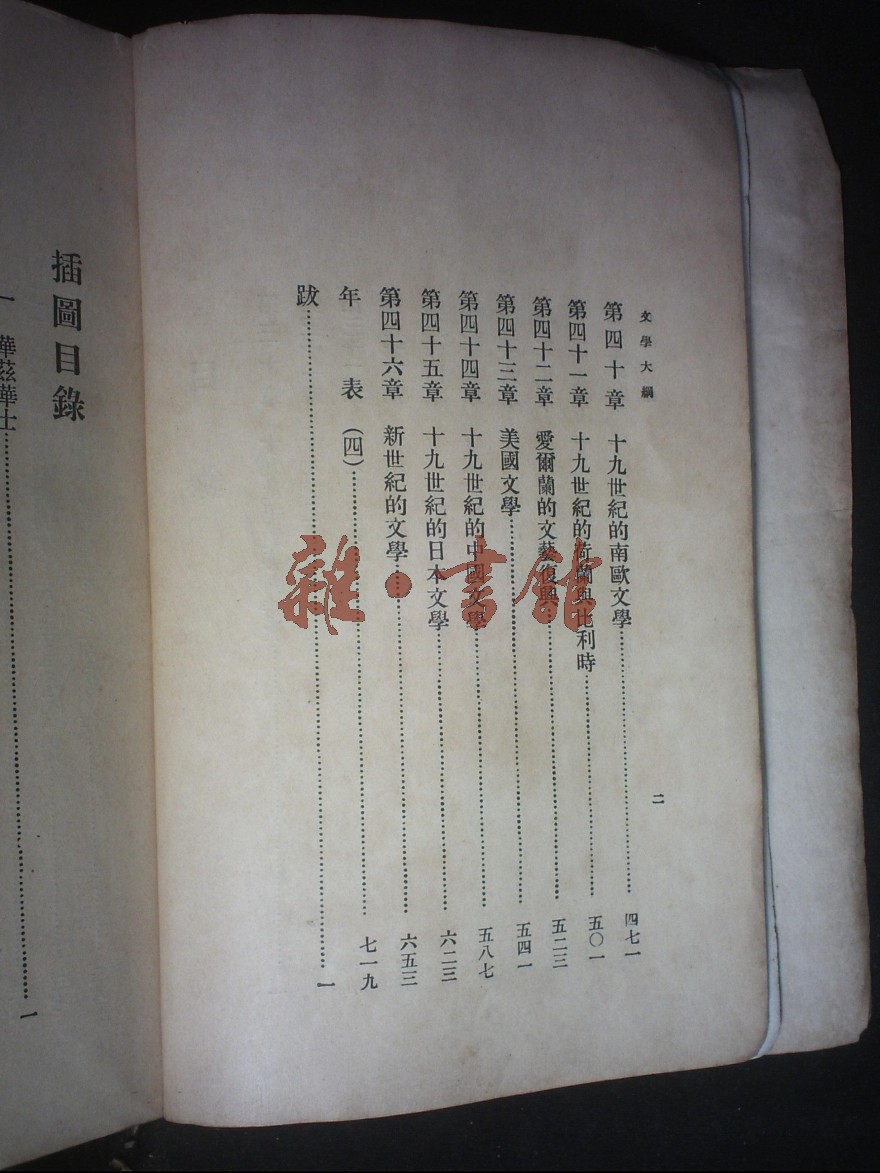 文學大綱
二
第四十章 十九世紀的南歐文學……四七一
第四十一章 十九世紀的荷蘭與比利時……五〇一
第四十二章 愛爾蘭的文藝復興……五二三
第四十三章 美國文學……五四一
第四十四章 十九世紀的中國文學……五八七
第四十五章 十九世紀的日本文學……六二三
第四十六章 新世紀的文學……六五三
年表(四)……七一九
跋……一
插圖目錄
一 華茲華士……1
雜·書館